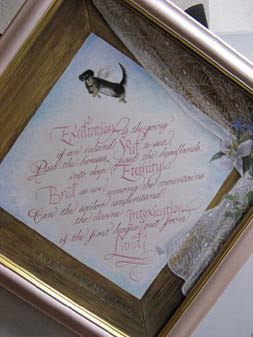 Exultation is the going
of an inland to sea
Past the houses, past the headlands
into deep Eternity
Bred as we, among the mountains
Can the sailor understand
the divine Intoxication
of the first league out from
Land?